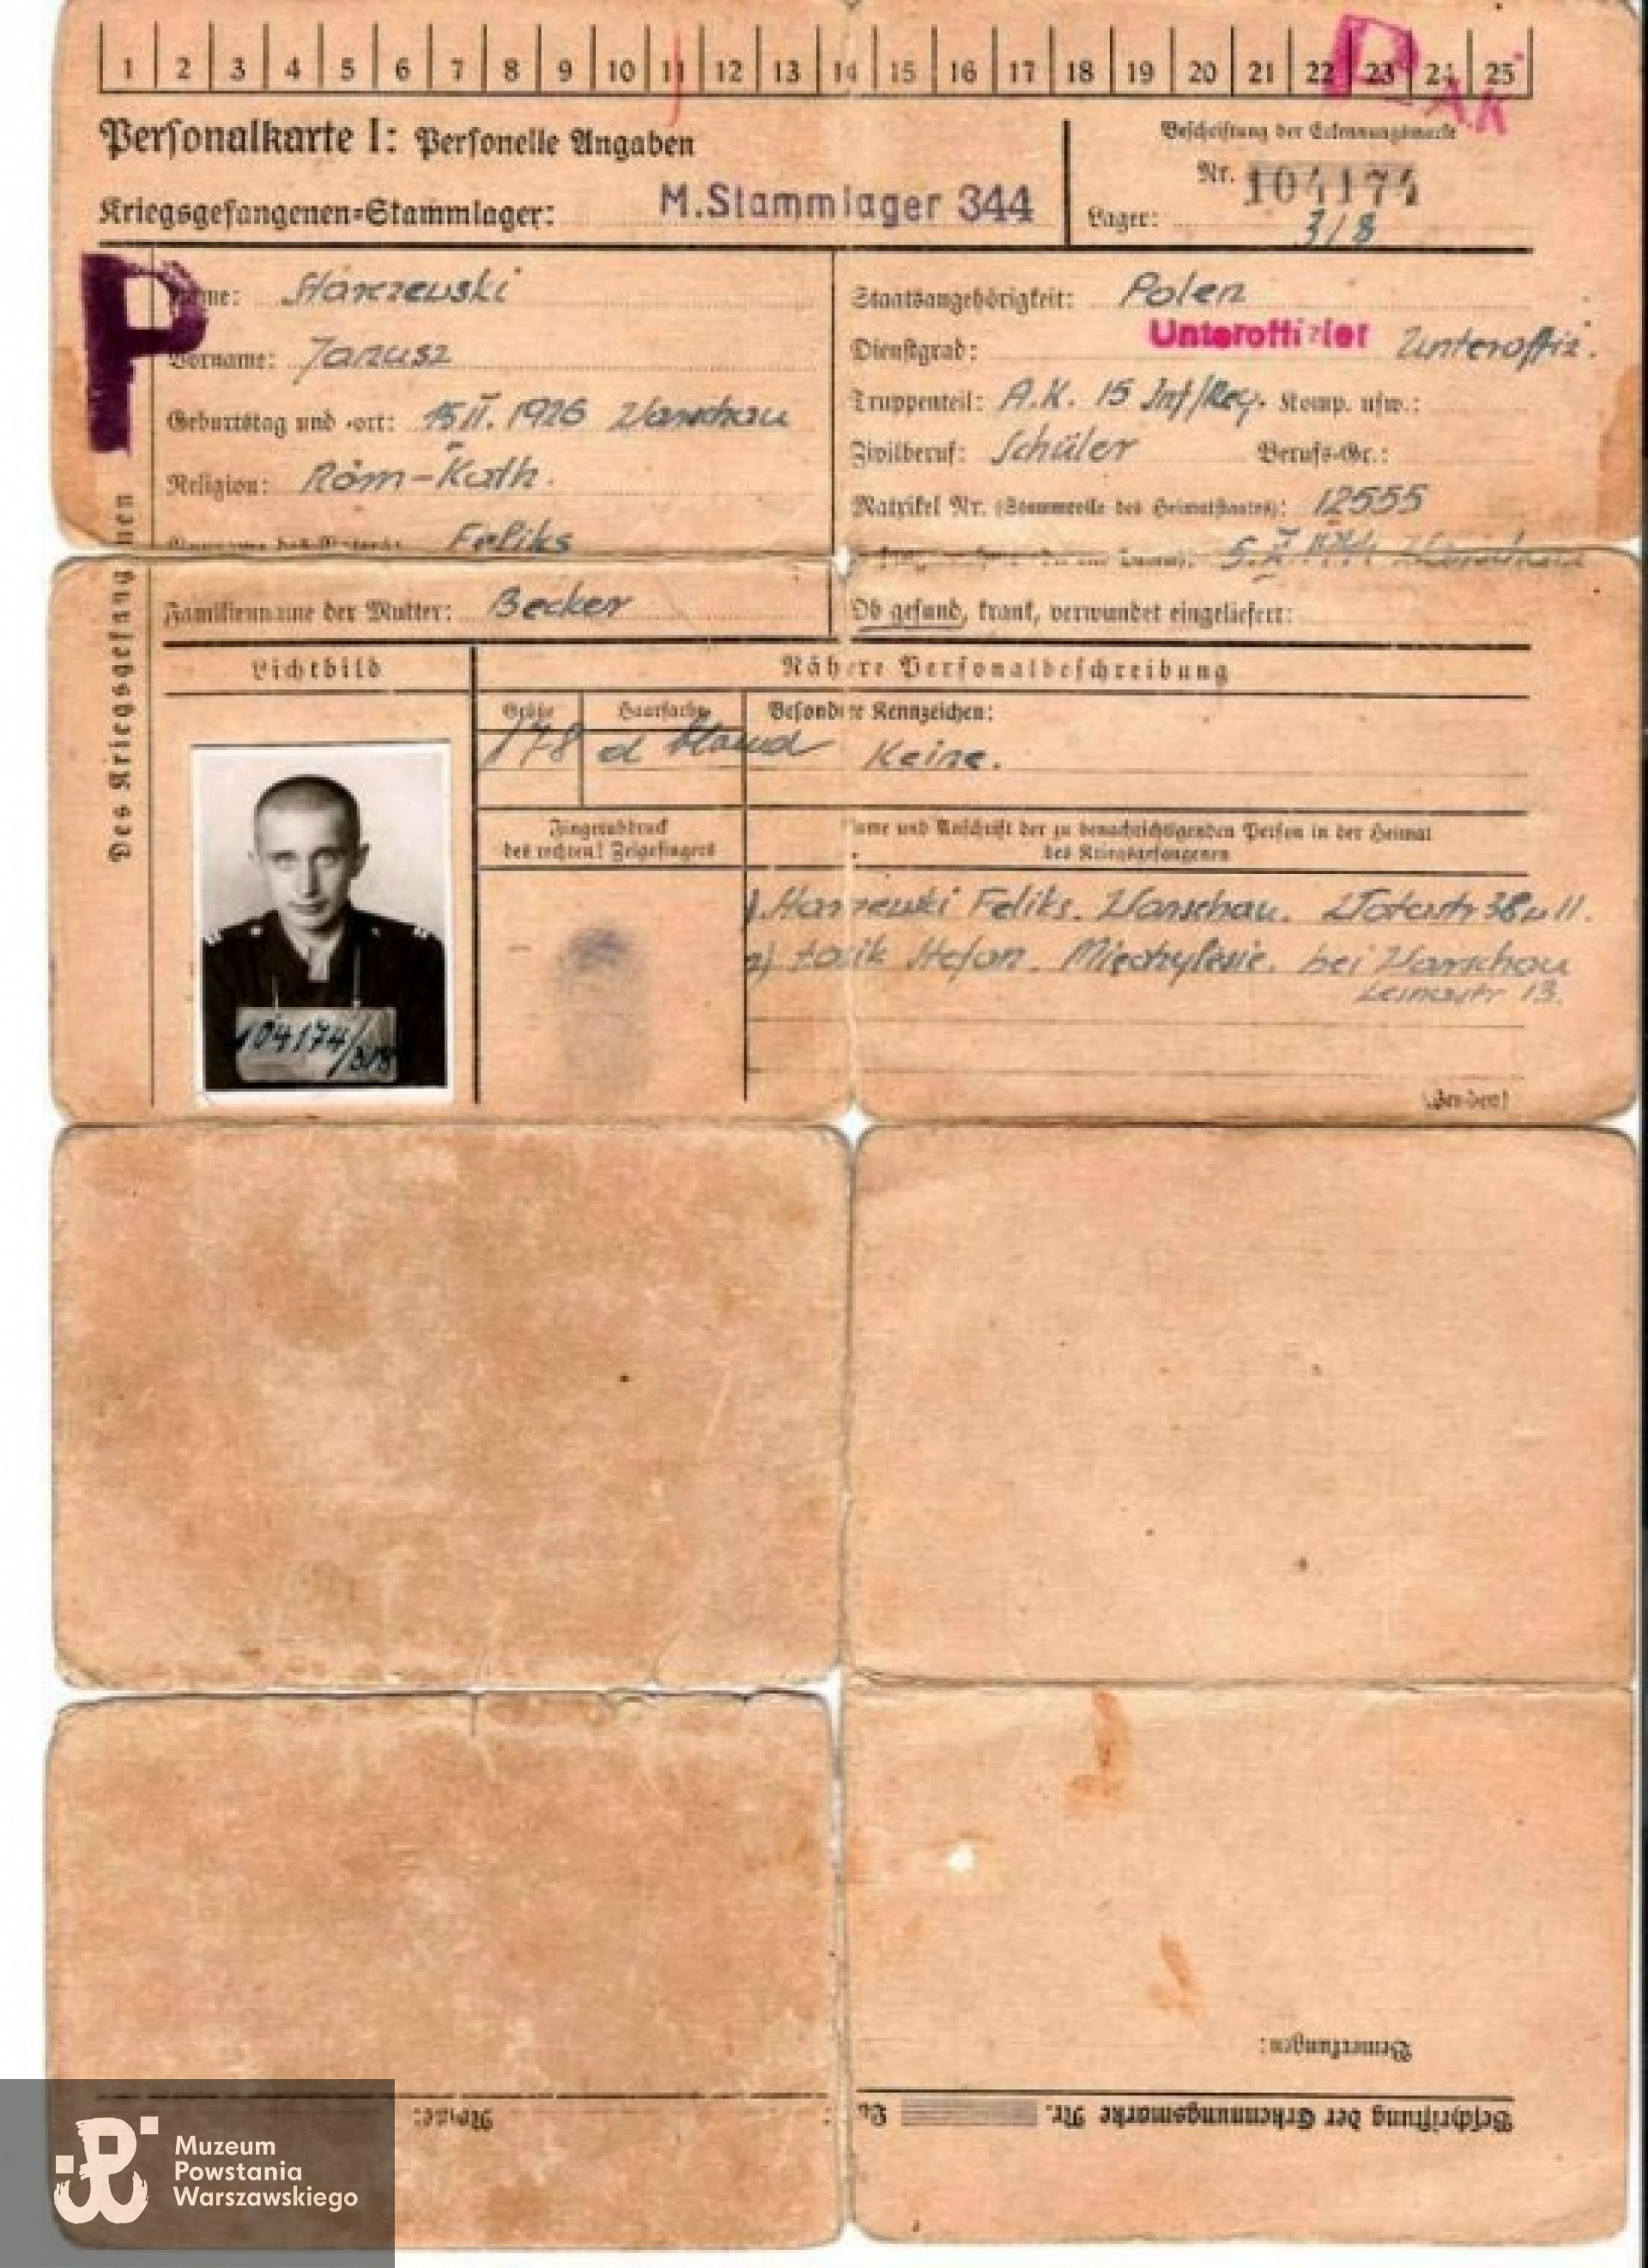 1 2 3 4 5 6 7 8 9 10 11 12 13 14 15 16 17 18 19 20 21 22 23 24 25
P
A.K
Personalkarte I: Personelle Angaben
Beschriftung der Erkennungsmarke
Nr. 104174
Kriegsgefangenen-Stammlager: M.Stammlager 344
Lager: 3/8
P
Name: Starzewski
Staatsangehörigkeit: Polen
Vorname: Janusz
Dienstgrad: Unteroffizier Unteroffiz.
Geburtstag und -ort: 15 II. 1926 Warschau
Truppenteil: A.K. 15 Inf/Reg. Komp. usw.:
Religion: Röm-Kath.
Zivilberuf: Schüler Berufs-Gr.:
Matrikel Nr. (Stammrolle des Heimatstaates): 12555
Vorname des Vaters: Feliks
5. X 1944 Warschau
Familienname der Mutter: Becker
Ob gesund, krank, verwundet eingeliefert:
Des Kriegsgefangenen
Lichtbild
Nähere Personalbeschreibung
Größe Haarfarbe Besondere Kennzeichen:
178 d blond Keine.
Fingerabdruck
des rechten! Zeigefingers
Name und Anschrift der zu benachrichtigenden Person in der Heimat
des Kriegsgefangenen
1) Starzewski Feliks. Warschau. 38 11.
2) Stefan. bei Warschau
13.
104174/318
(Wenden!)
Bemerkungen:
Beschriftung der Erkennungsmarke Nr.
Name:
Muzeum
Powstania
Warszawskiego